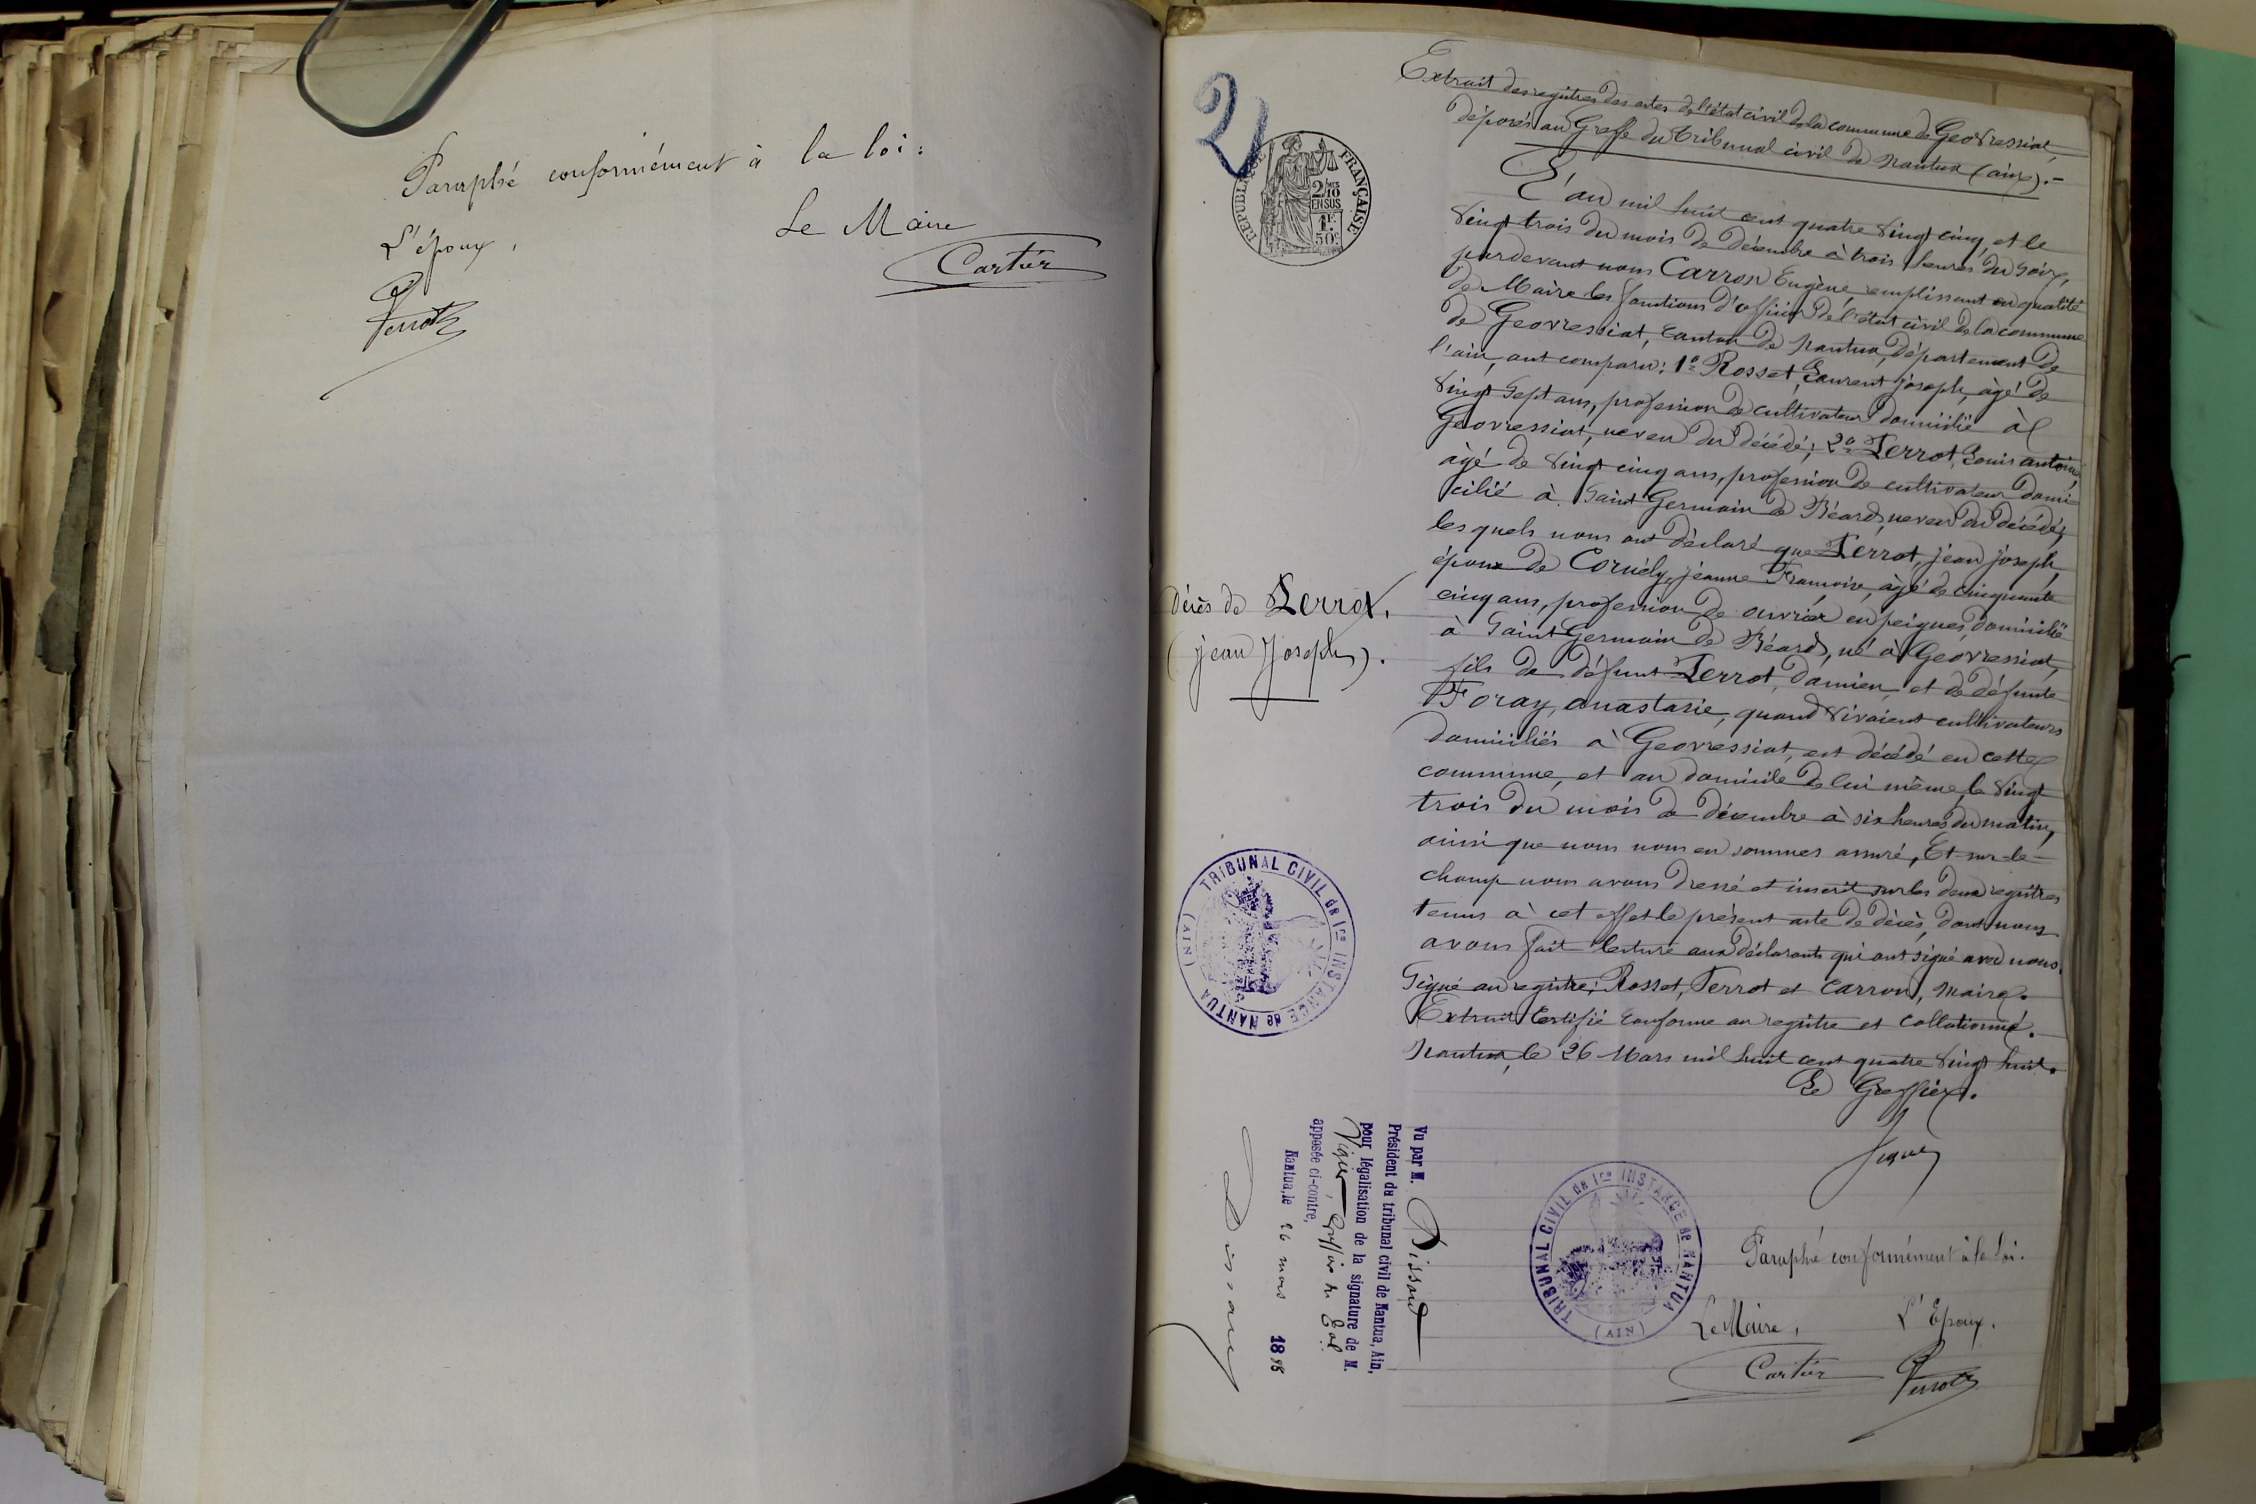 Paraphé conformément à la loi :
L'époux,
Le Maire
Cartier
Perrot
2
REPUBLIQUE FRANÇAISE
2/10
EN SUS
1F.
50c
Extrait des registres des actes de l'état civil de la commune de Geovressiat,
déposés au Greffe du Tribunal civil de Nantua (ain).-
L'an mil huit cent quatre vingt cinq, et le
vingt trois du mois de décembre à trois heures du soir,
pardevant nous Carron Eugène remplissant en qualité
de Maire les fonctions d'officier de l'état civil de la commune
de Geovressiat, canton de nantua, département de
l'ain, ont comparu : 1º Rosset, Laurent joseph, âgé de
vingt sept ans, profession de cultivateur domicilié à
Geovressiat, neveu du décédé ; 2º Perrot, Louis antoine,
âgé de vingt cinq ans, profession de cultivateur domi-
cilié à Saint Germain de Béard, neveu du décédé,
les quels nous ont déclaré que Perrot, jean joseph,
époux de Cornély, jeanne Françoise, âgé de cinquante
cinq ans, profession de ouvrier en peignes, domicilié
à Saint Germain de Béard, né à Geovressiat,
fils de défunt Perrot, damien, et de défunte
Foray, anastasie, quand vivaient cultivateurs
domiciliés à Geovressiat, est décédé en cette
commune, et au domicile de lui même, le vingt
trois du mois de décembre à six heures du matin,
ainsi que nous nous en sommes assuré, Et sur-le-
champ nous avons dressé et inscrit sur les deux registres
tenus à cet effet le présent acte de décès, dont nous
avons fait lecture aux déclarants qui ont signé avec nous.
Signé au registre : Rosset, Perrot et Carron, maire.
Extrait certifié conforme au registre et collationné.
Nantua, le 26 Mars mil huit cent quatre vingt huit.
Le Greffier.
décès de Perrot,
(jean Joseph).
TRIBUNAL CIVIL de 1re INSTANCE de NANTUA
(AIN)
Vu par M.
Président du tribunal civil de Nantua, Ain,
pour légalisation de la signature de M.
Greffier
apposée ci-contre,
Nantua, le 26 mars 1888
TRIBUNAL CIVIL de 1re INSTANCE de NANTUA
(AIN)
Paraphé conformément à la loi.
Le Maire,
L'Epoux.
Cartier
Perrot